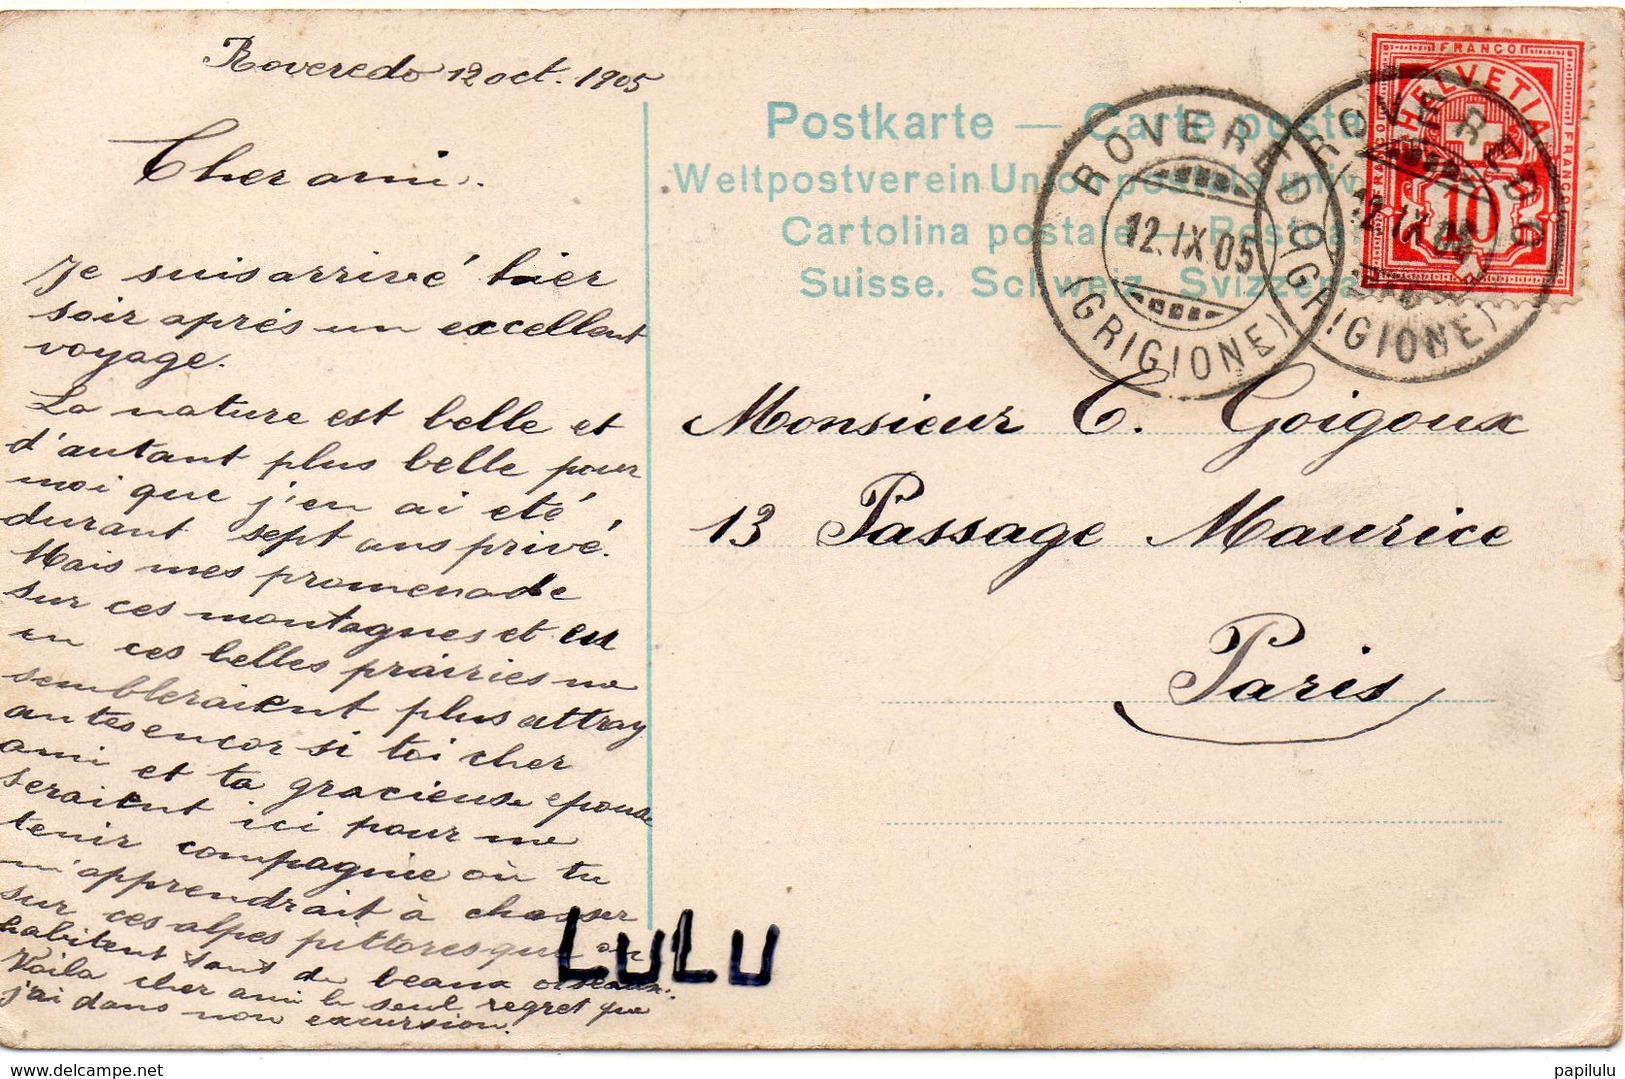 Roveredo 12 oct. 1905
Cher ami.
Je suis arrivé hier
soir après un excellent
voyage.
La nature est belle et
d'autant plus belle pour
moi que j'en ai eté
durant sept ans privé.
Mais mes promenade
sur ces montagnes et en
en ces belles prairies me
sembleraient plus attray
antes encor si toi cher
ami et ta gracieuse epouse
seraient ici pour me
tenir compagnie où tu
m'apprendrait à chasser
sur ces alpes pittoresque ou
habitent tant de beaux oiseaux.
Voila cher ami le seul regret que
j'ai dans mon excursion.
Postkarte — Carte postale
Weltpostverein Union postale univ
Cartolina postale — Postcar
Suisse. Schweiz. Svizzera
ROVEREDO
12.IX.05
(GRIGIONE)
ROVEREDO
12.IX.05
(GRIGIONE)
FRANCO
HELVETIA
FRANCO
FRANCO
10
Monsieur C. Goigoux
13 Passage Maurice
Paris
LULU
www.delcampe.net
papilulu